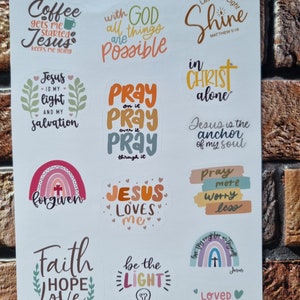 Coffee
gets me
started
Jesus
keeps me going
with GOD
all things
are
Possible
Shine
MATTHEW 5:16
Jesus
IS MY
light
AND MY
salvation
PRAY
on it
PRAY
over it
PRAY
through it
in
CHRIST
alone
Jesus is the
anchor
of my soul
forgiven
JESUS
LOVES
me
pray
more
worry
less
Faith
HOPE
Love
be the
LIGHT
Jesus
LOVED